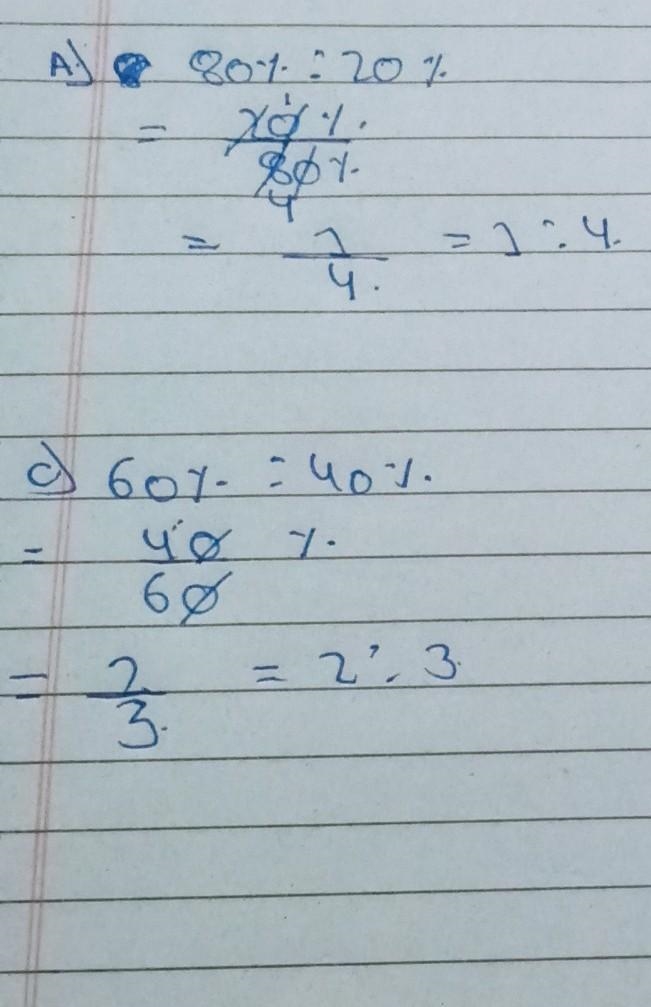 A) 80% : 20%
= 20%
80%
4
= 1 = 1 : 4.
4.
C) 60% : 40%.
= 40 %.
60
= 2 = 2 : 3.
3.